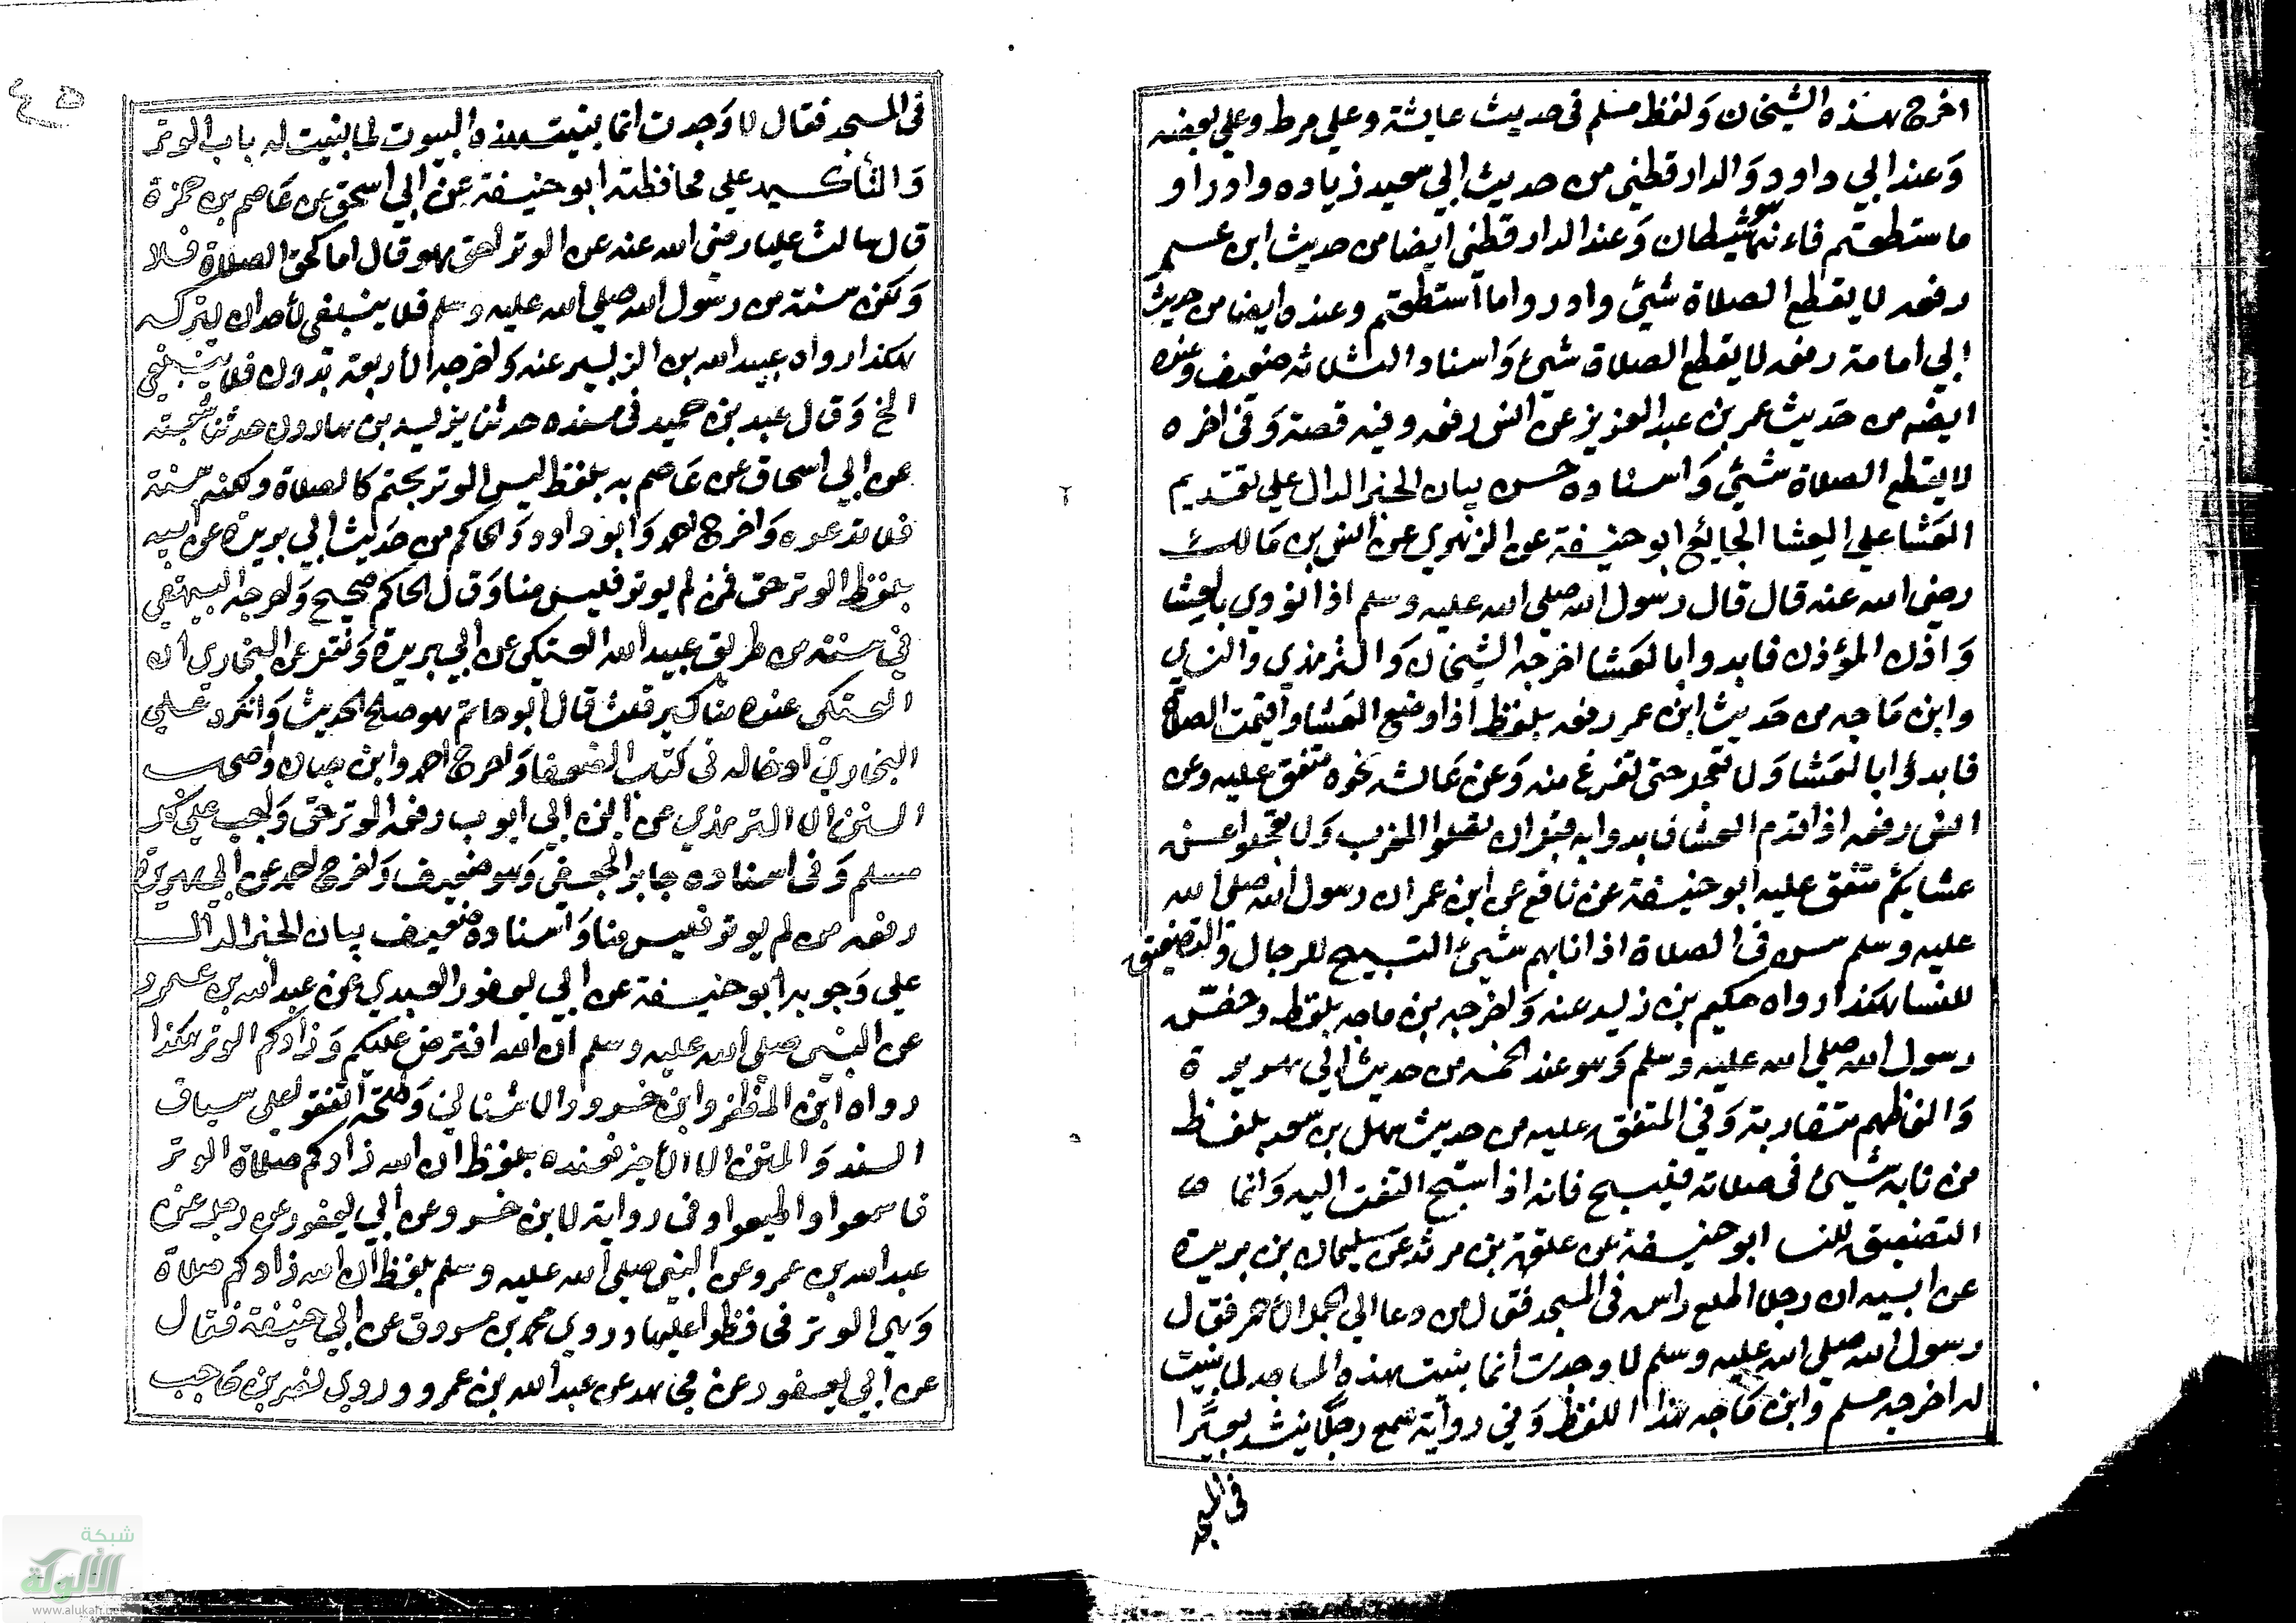 اخرج هذه الشيخان ولفظ مسلم في حديث عايشة وعلي مرط وعلي بعضه
وعند ابي داود والدارقطني من حديث ابي سعيد زياده وادراو
ما ستطعتم فاءنه هو شيطان وعند الدارقطني ايضا من حديث ابن عمر
رفعه لا يقطع الصلاة شيئ وادروا ما استطعتم وعنده ايضا من حديث
ابي امامة رفعه لا يقطع الصلاة شيئ واسناد الثلاثه ضعيف وعنده
ايضه من حديث عمر بن عبد العزيز عن انس رفعه وفيه قصة وفي اخره
لا يقطع الصلاة شيئ واسناده حسن بيان الخبر الدال علي تقديم
العشا علي العشا الجايع ابو حنيفة عن الزهري عن انس بن مالك
رضي الله عنه قال قال رسول الله صلي الله عليه وسلم اذا نودي بالعشا
واذن المؤذن فابدوا بالعشا اخرجه الشيخان والترمذي والنساي
وابن ماجه من حديث ابن عمر رفعه بلفظ اذا وضع العشا واقيمت الصلاة
فابدؤا بالعشا ولا تعجل حتي تفرغ منه وعن عايشه نحوه متفق عليه وعن
انس رفعه اذا قدم العشا فابدوا به قبل ان تصلوا المغرب ولا تعجلوا عن
عشايكم متفق عليه ابو حنيفة عن نافع عن ابن عمر ان رسول الله صلي الله
عليه وسلم سن في الصلاة اذا نابهم شيئ التسبيح للرجال والتصفيق
للنسا هكذا رواه حكيم بن زيد عنه واخرجه بن ماجه بلفظه رخص
رسول الله صلي الله عليه وسلم وهو عند الخمسه من حديث ابي هريرة
والفاظهم متقاربة وفي المتفق عليه من حديث سهل بن سعد بلفظ
من نابه شيئ في صلاته فليسبح فانه اذا اسبح التفت اليه وانما
التصفيق للنسا ابو حنيفة عن علقمة بن مرثد عن سليمان بن بريدة
عن ابيه ان رجلا اطلع راسه في المسجد فقال من دعا الي الجمل الاحمر فقال
رسول الله صلي الله عليه وسلم لا وجدت انما بنيت هذه المساجد لما بنيت
له اخرجه مسلم وابن ماجه بهذا اللفظ وفي رواية سمع رجلا ينشد بعيرا
في المسجد
٤٥
في المسجد فقال لا وجدت انما بنيت هذه البيوت لما بنيت له باب الوتر
والتأكيد علي محافظته ابو حنيفة عن ابي اسحق عن عاصم بن حمزة
قال سالت عليا رضي الله عنه عن الوتر احق هو قال اما كحق الصلاة فلا
ولكن سنة من رسول الله صلي الله عليه وسلم فلا ينبغي لأحد ان يتركه
هكذا رواه عبيد الله بن الزبير عنه واخرجه الأربعة بدون فلا ينبغي
الخ وقال عبد بن حميد في مسنده حدثنا يزيد بن هارون حدثنا شعبة
عن ابي اسحاق عن عاصم به بلفظ ليس الوتر بحتم كالصلاة ولكنه سنة
فلا تدعوه واخرج احمد وابو داود والحاكم من حديث ابي بريدة عن ابيه
بلفظ الوتر حق فمن لم يوتر فليس منا وقال الحاكم صحيح واخرجه البيهقي
في سننه من طريق عبيد الله العتكي عن ابي بريدة ونقل عن البخاري ان
العتكي عنده مناكير قلت قال ابو حاتم هو صالح الحديث وانكر علي
البخاري ادخاله في كتاب الضعفا واخرج احمد وابن حبان واصحاب
السنن الا الترمذي عن ابي ايوب رفعه الوتر حق واجب علي كل
مسلم وفي اسناده جابر الجعفي وهو ضعيف واخرج احمد عن ابي هريرة
رفعه من لم يوتر فليس منا واسناده ضعيف بيان الخبر الدال
علي وجوبه ابو حنيفة عن ابي يعفور العبدي عن عبد الله بن عمرو
عن النبي صلي الله عليه وسلم ان الله افترض عليكم وزادكم الوتر هكذا
رواه ابن المظفر وابن خسرو والاشناني وطلحة اتفقوا علي سياق
السند والمتن الا الأخير فعنده بلفظ ان الله زادكم صلاة الوتر
فاسمعوا واطيعوا وفي رواية لابن خسرو عن ابي يعفور عن رجل عن
عبد الله بن عمرو عن النبي صلي الله عليه وسلم بلفظ ان الله زادكم صلاة
وهي الوتر فحافظوا عليها وروي محمد بن مسروق عن ابي حنيفة فقال
عن ابي يعفور عن مجاهد عن عبد الله بن عمرو وروي نصر بن حاجب
شبكة
الألوكة
www.alukah.net